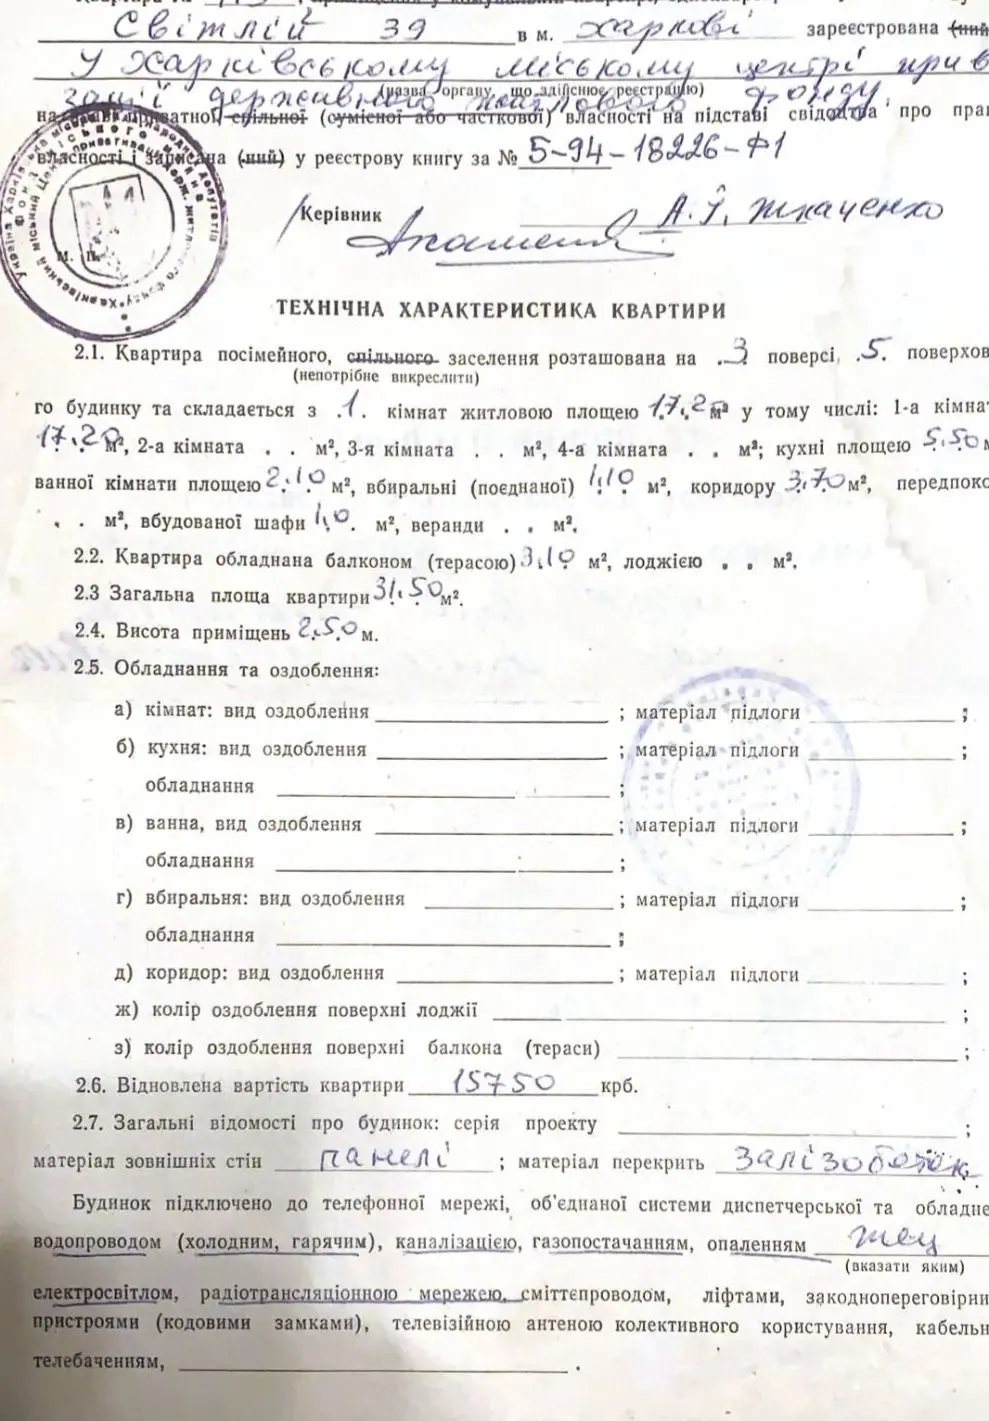 Світлій 39 в м. Харкові зареєстрована (ний)
У Харківському міському центрі прив
зації державного житлового фонду,
(назва органу, що здійснює реєстрацію)
на праві приватної спільної (сумісної або часткової) власності на підставі свідоцтва про пра
власності і записана (ний) у реєстрову книгу за № 5-94-18226-Ф1
Керівник А. І. Ткаченко
М. П.
ТЕХНІЧНА ХАРАКТЕРИСТИКА КВАРТИРИ
2.1. Квартира посімейного, спільного заселення розташована на 3 поверсі 5. поверхов
(непотрібне викреслити)
го будинку та складається з 1. кімнат житловою площею 17,20 м² у тому числі: 1-а кімнат
17,20 м², 2-а кімната . . м², 3-я кімната . . м², 4-а кімната . . м²; кухні площею 5.50 м
ванної кімнати площею 2.10 м², вбиральні (поєднаної) 1.10 м², коридору 3.70 м², передпоко
. . м², вбудованої шафи 1,0. м², веранди . . м².
2.2. Квартира обладнана балконом (терасою) 3.10 м², лоджією . . м².
2.3 Загальна площа квартири 31.50 м².
2.4. Висота приміщень 2.50 м.
2.5. Обладнання та оздоблення:
а) кімнат: вид оздоблення ; матеріал підлоги ;
б) кухня: вид оздоблення ; матеріал підлоги ;
обладнання ;
в) ванна, вид оздоблення ; матеріал підлоги ;
обладнання ;
г) вбиральня: вид оздоблення ; матеріал підлоги ;
обладнання ;
д) коридор: вид оздоблення ; матеріал підлоги ;
ж) колір оздоблення поверхні лоджії ;
з) колір оздоблення поверхні балкона (тераси) ;
2.6. Відновлена вартість квартири 15750 крб.
2.7. Загальні відомості про будинок: серія проекту ;
матеріал зовнішніх стін панелі ; матеріал перекрить
Будинок підключено до телефонної мережі, об'єднаної системи диспетчерської та обладне
водопроводом (холодним, гарячим), каналізацією, газопостачанням, опаленням ТЕЦ
(вказати яким)
електросвітлом, радіотрансляційною мережею, сміттєпроводом, ліфтами, закоднопереговірни
пристроями (кодовими замками), телевізійною антеною колективного користування, кабельн
телебаченням, .